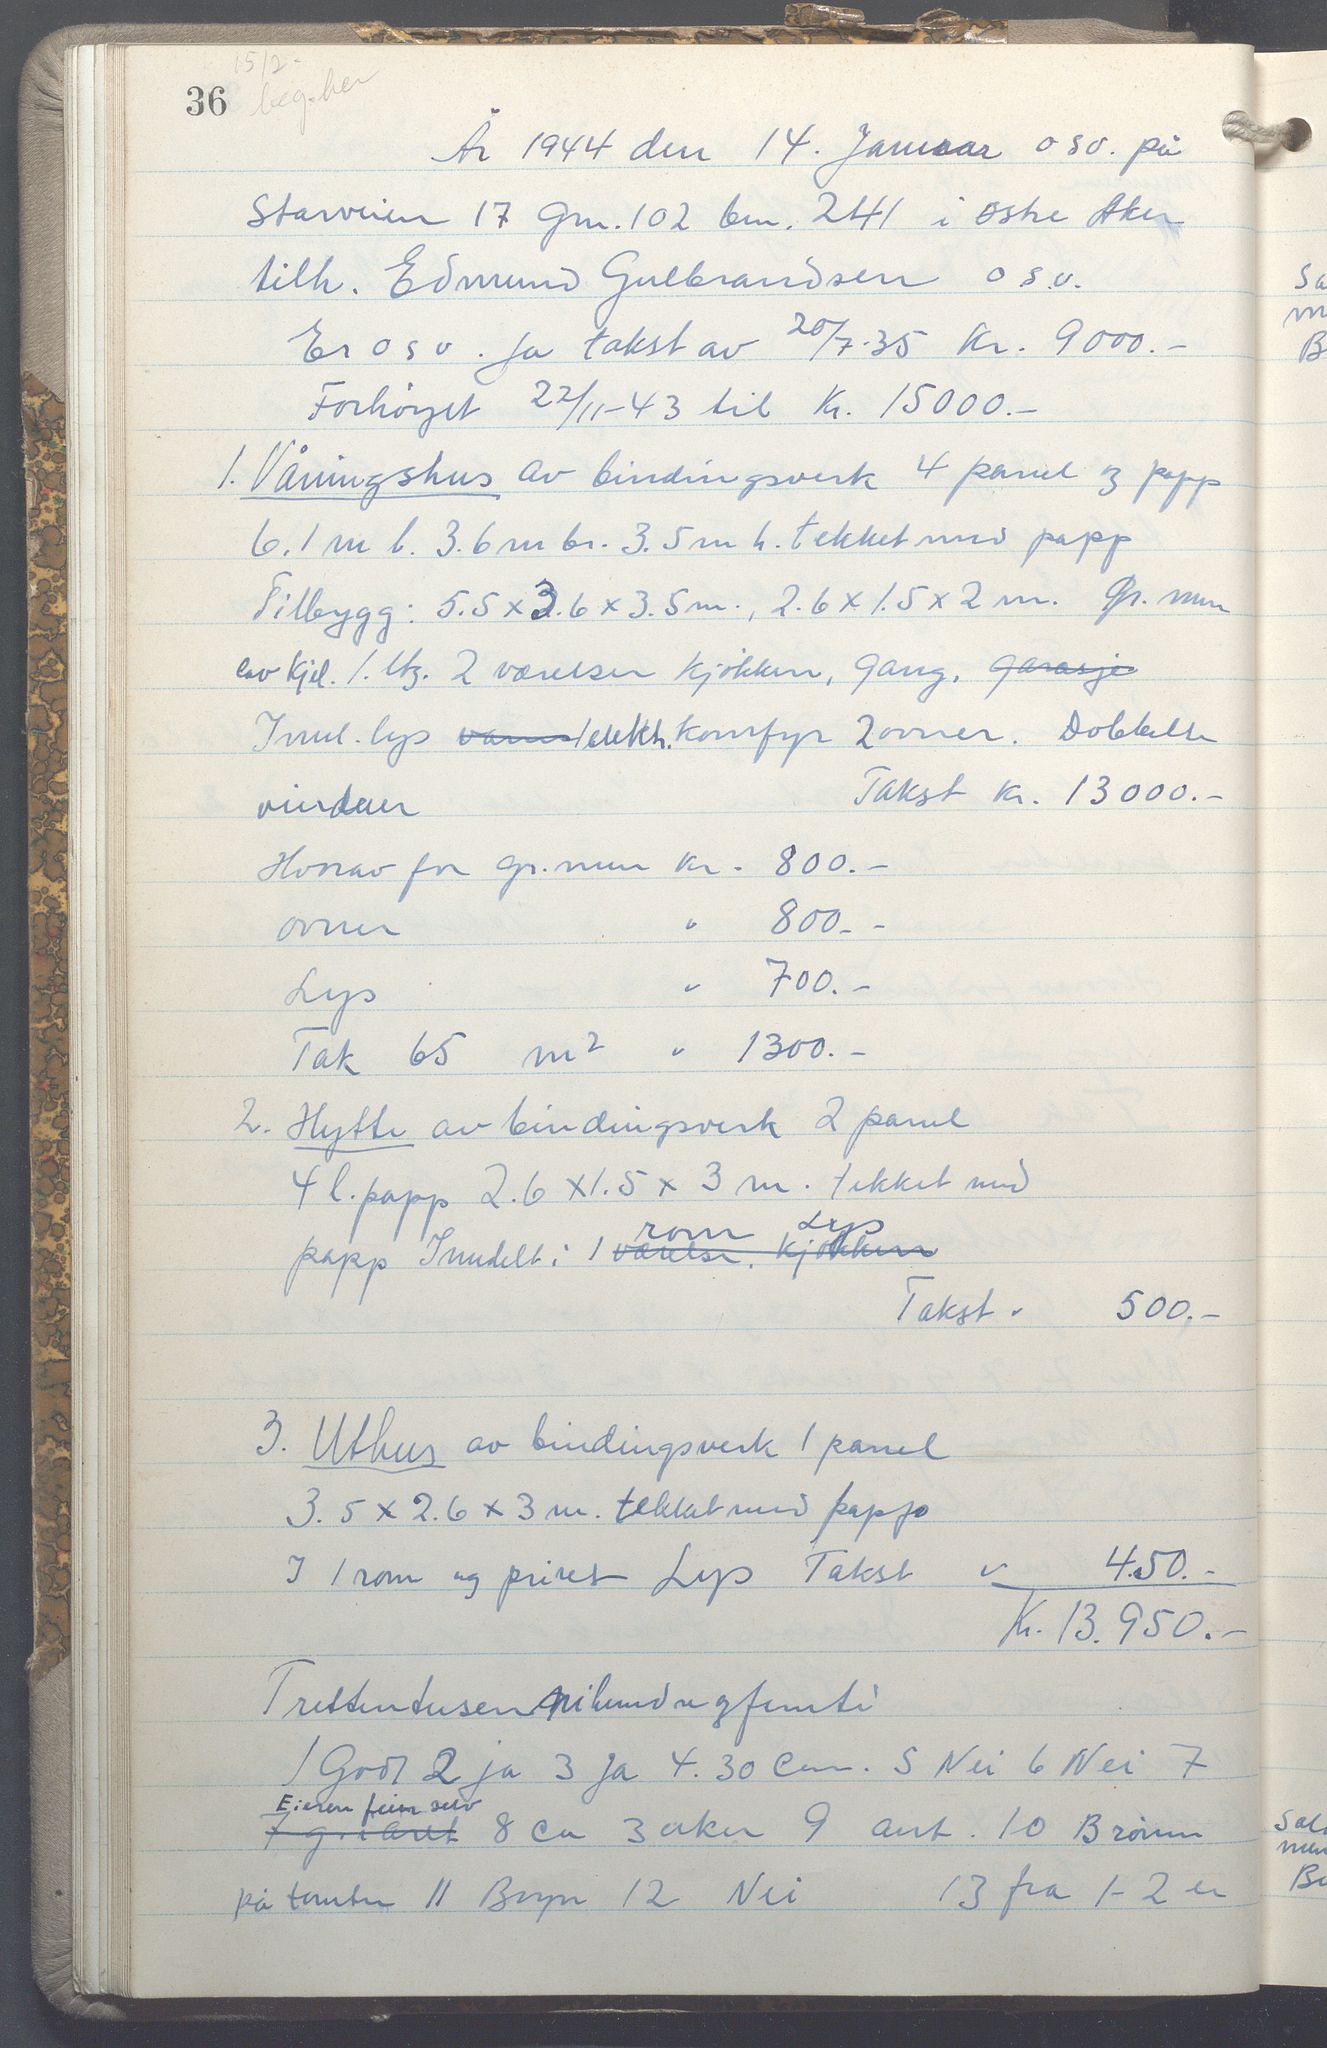 15/2-
36 beg. her
År 1944 den 14. Januar osv. på
Starveien 17 Gnr. 102 bnr. 241 i Østre Aker
tilh. Edmund Gulbrandsen o s.v.
Er o s v. Ja takst av 20/7-35 Kr. 9000.-
Forhöyet 22/11-43 til Kr. 15000.-
1. Våningshus av bindingsverk 4 panel og papp
6.1 m l. 3.6 m br. 3.5 m h. tekket med papp
Tilbygg: 5.5 x 3.6 x 3.5 m., 2.6 x 1.5 x 2 m. Gr. mur
lav kjel. 1. etg. 2 værelser kjökken, gang, garasje
Innl. lys vann 1 elektr. komfyr 2 ovner. Dobbelte
vinduer Takst Kr. 13000.-
Hvorav for gr. mur Kr. 800.-
ovner " 800.-
Lys " 700.-
Tak 65 m² " 1300.-
2. Hytte av bindingsverk 2 panel
4 l. papp 2.6 x 1.5 x 3 m. tekket med
rom Lys
papp Inndelt i 1 værelse, kjökken
Takst " 500.-
3. Uthus av bindingsverk 1 panel
3.5 x 2.6 x 3 m. tekket med papp
I 1 rom og privet Lys Takst " 450.-
Kr. 13.950.-
Trettentusen nihundreogfemti
1 Godt 2 ja 3 Ja 4. 30 cm. 5 Nei 6 Nei 7
Eieren feier selv
7 g. i året 8 ca 3 uker 9 ant. 10 Brönn
på tomten 11 Bryn 12 Nei 13 fra 1-2 er